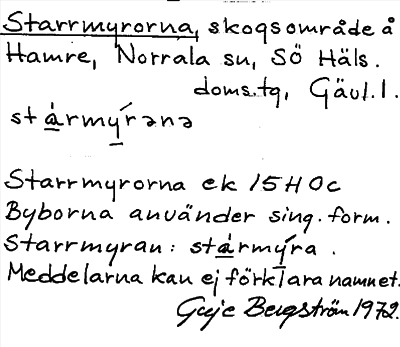 Starrmyrorna, skogsområde å
Hamre, Norrala sn, Sö Häls.
doms.tg, Gävl.l.
stármýrənə
Starrmyrorna ek 15H0c
Byborna använder sing.form.
Starrmyran: stármýra.
Meddelarna kan ej förklara namnet.
Bergström 1972.